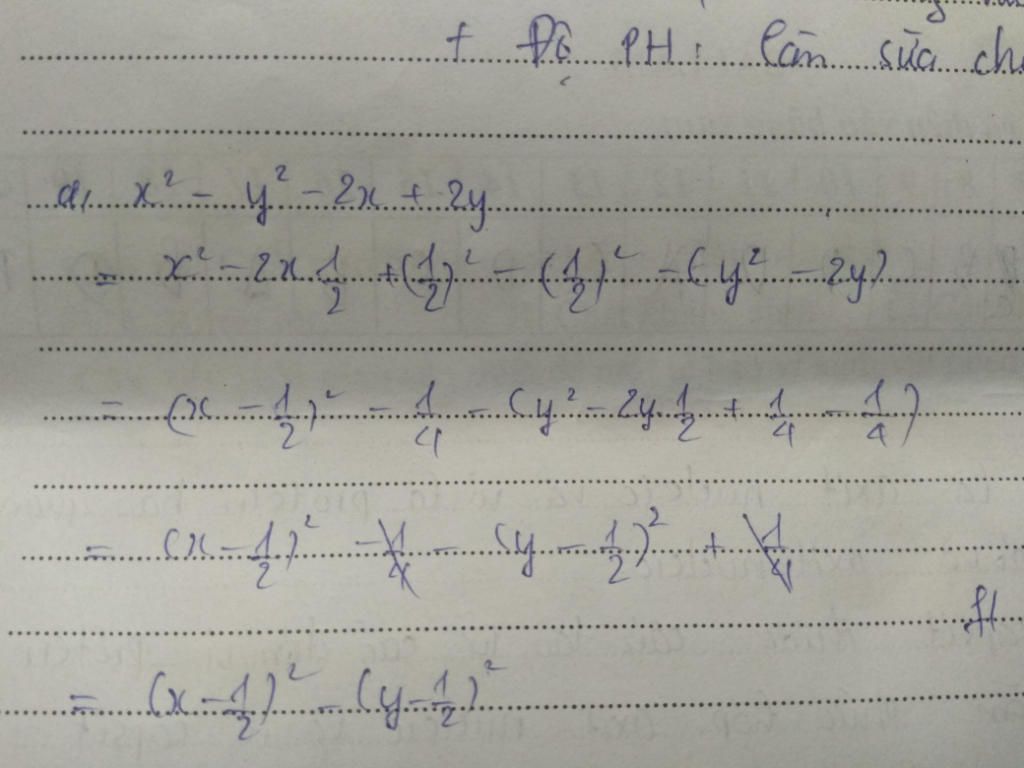 + Độ PH: Cần sửa ch
a, x² - y² - 2x + 2y
= x² - 2x 1/2 + (1/2)² - (1/2)² - (y² - 2y)
= (x - 1/2)² - 1/4 - (y² - 2y 1/2 + 1/4 - 1/4)
= (x - 1/2)² - 1/4 - (y - 1/2)² + 1/4
= (x - 1/2)² - (y - 1/2)²